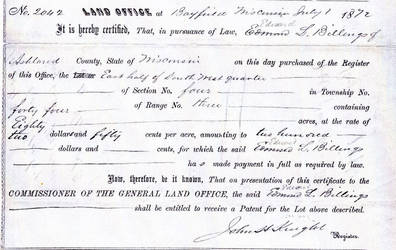 No. 2042 LAND OFFICE at Bayfield Wisconsin July 1 1872
It is hereby certified, That, in pursuance of Law, Edward
Edmund L. Billings of
Ashland County, State of Wisconsin on this day purchased of the Register
of this Office, the East half of South West quarter
of Section No. four in Township No.
forty four of Range No. three containing
Eighty acres, at the rate of
two dollars and fifty cents per acre, amounting to two hundred
dollars and cents, for which the said Edward
Edmund L. Billings
has made payment in full as required by law.
Now, therefore, be it known, That on presentation of this certificate to the
COMMISSIONER OF THE GENERAL LAND OFFICE, the said Edward
Edmund L. Billings
shall be entitled to receive a Patent for the Lot above described.
John H Knight
Register.